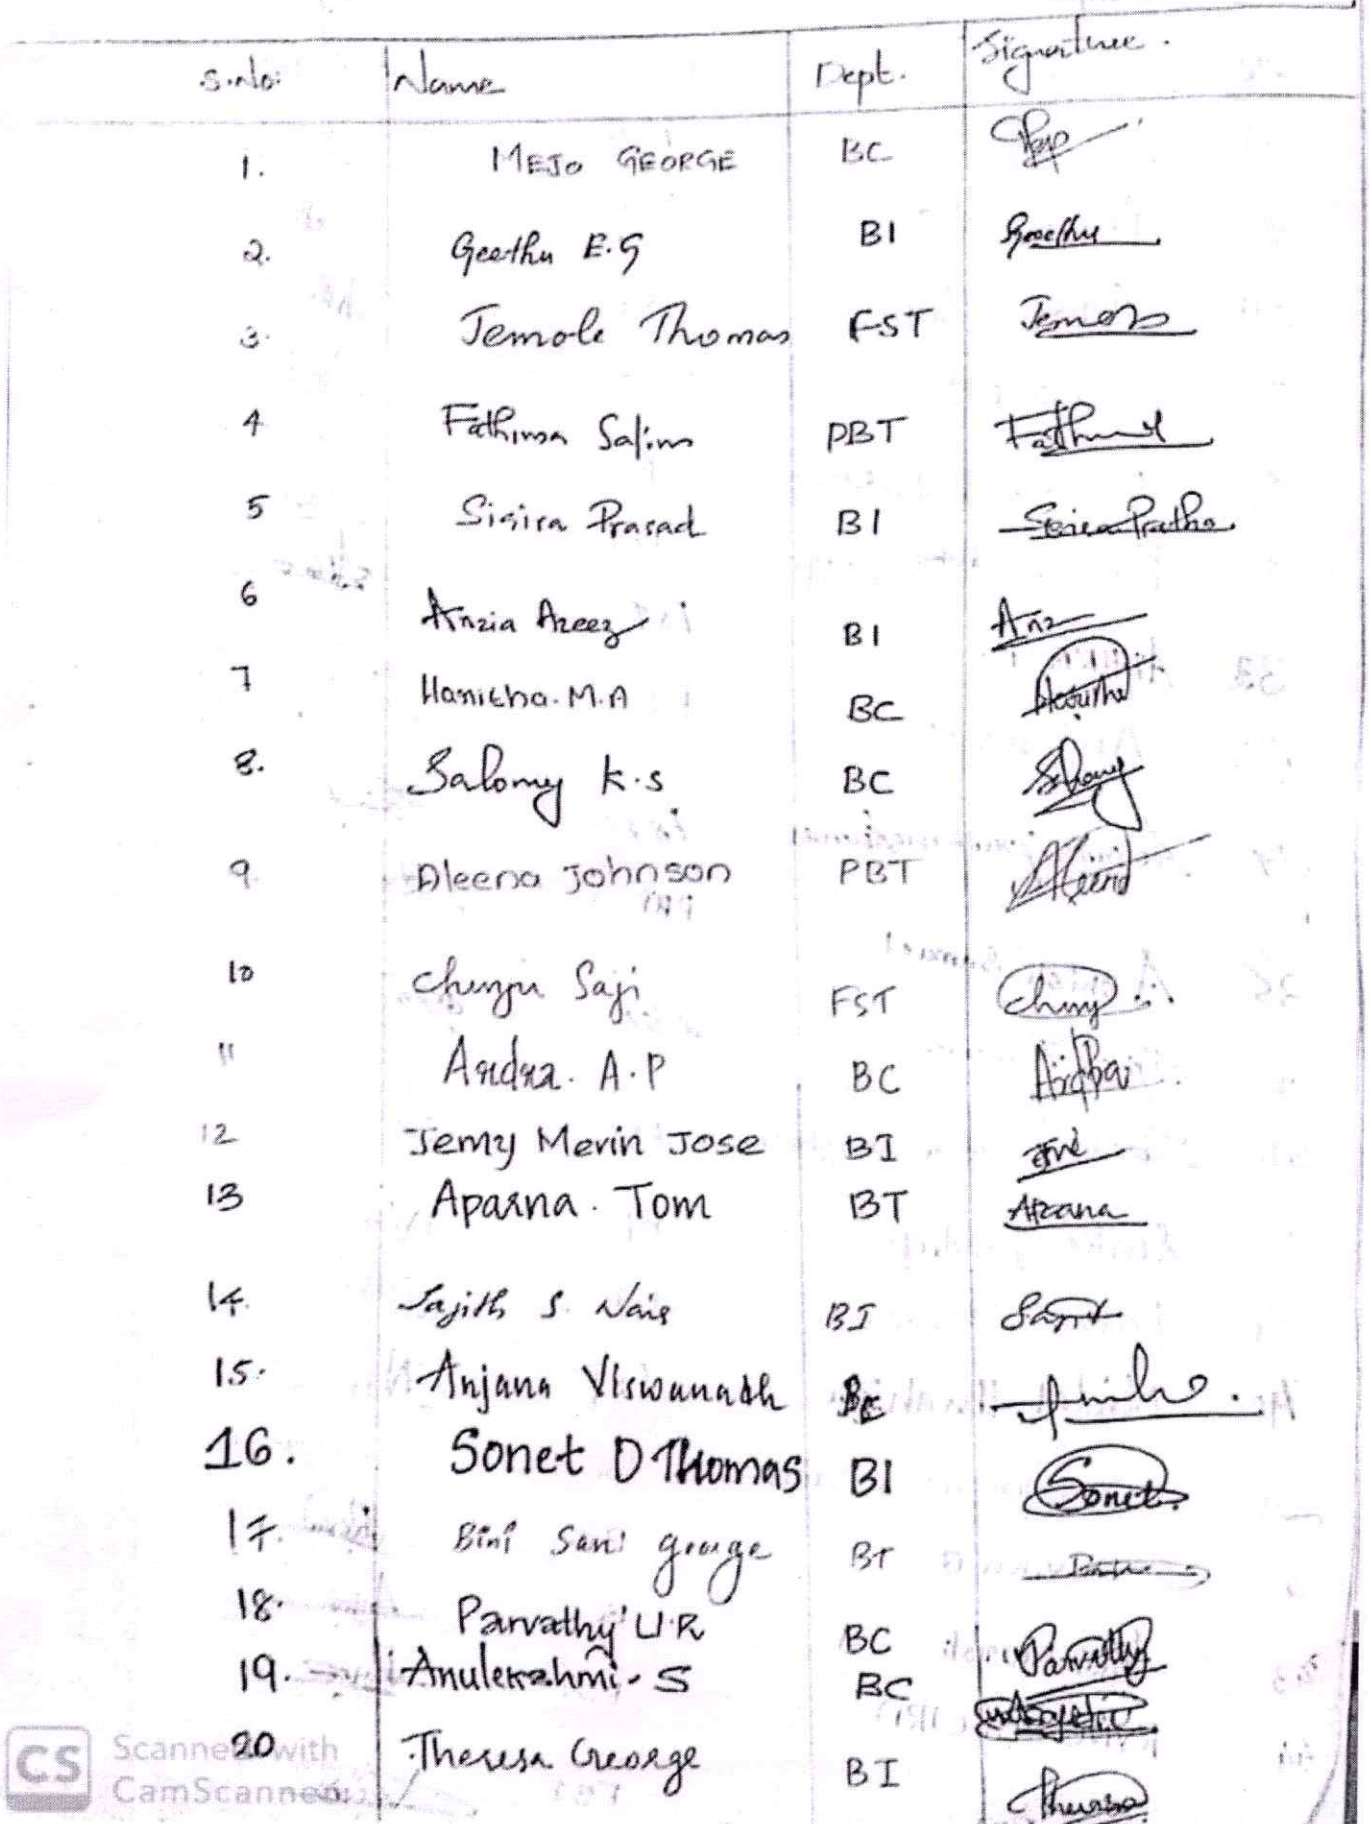 S.No: Name Dept. Signature.
1. MEJO GEORGE BC
2. Geethu E.G BI Geethu
3. Jemole Thomas FST
4 Fathima Salim PBT
5 Sisira Prasad BI
6 Anzia Azeez BI Anz
7 Hanitha. M.A BC
8. Salomy K.S BC
9. Aleena Johnson PBT
10 Chinju Saji FST
11 Andra. A.P BC
12 Jemy Merin Jose BI
13 Aparna. Tom BT
14. Sajith S. Nair BI
15. Anjana Viswanadh BC
16. Sonet D Thomas BI Sonet
17. Bini Sani George BT
18. Parvathy U.R BC Parvathy
19. Anulekshmi. S BC
20 Theresa George BI Theresa
CS Scanned with
CamScanner